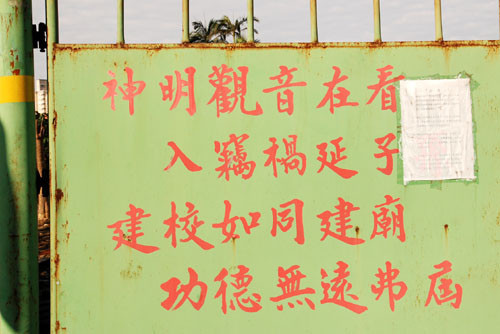 神明觀音在看
入竊禍延子
建校如同建廟
功德無遠弗屆